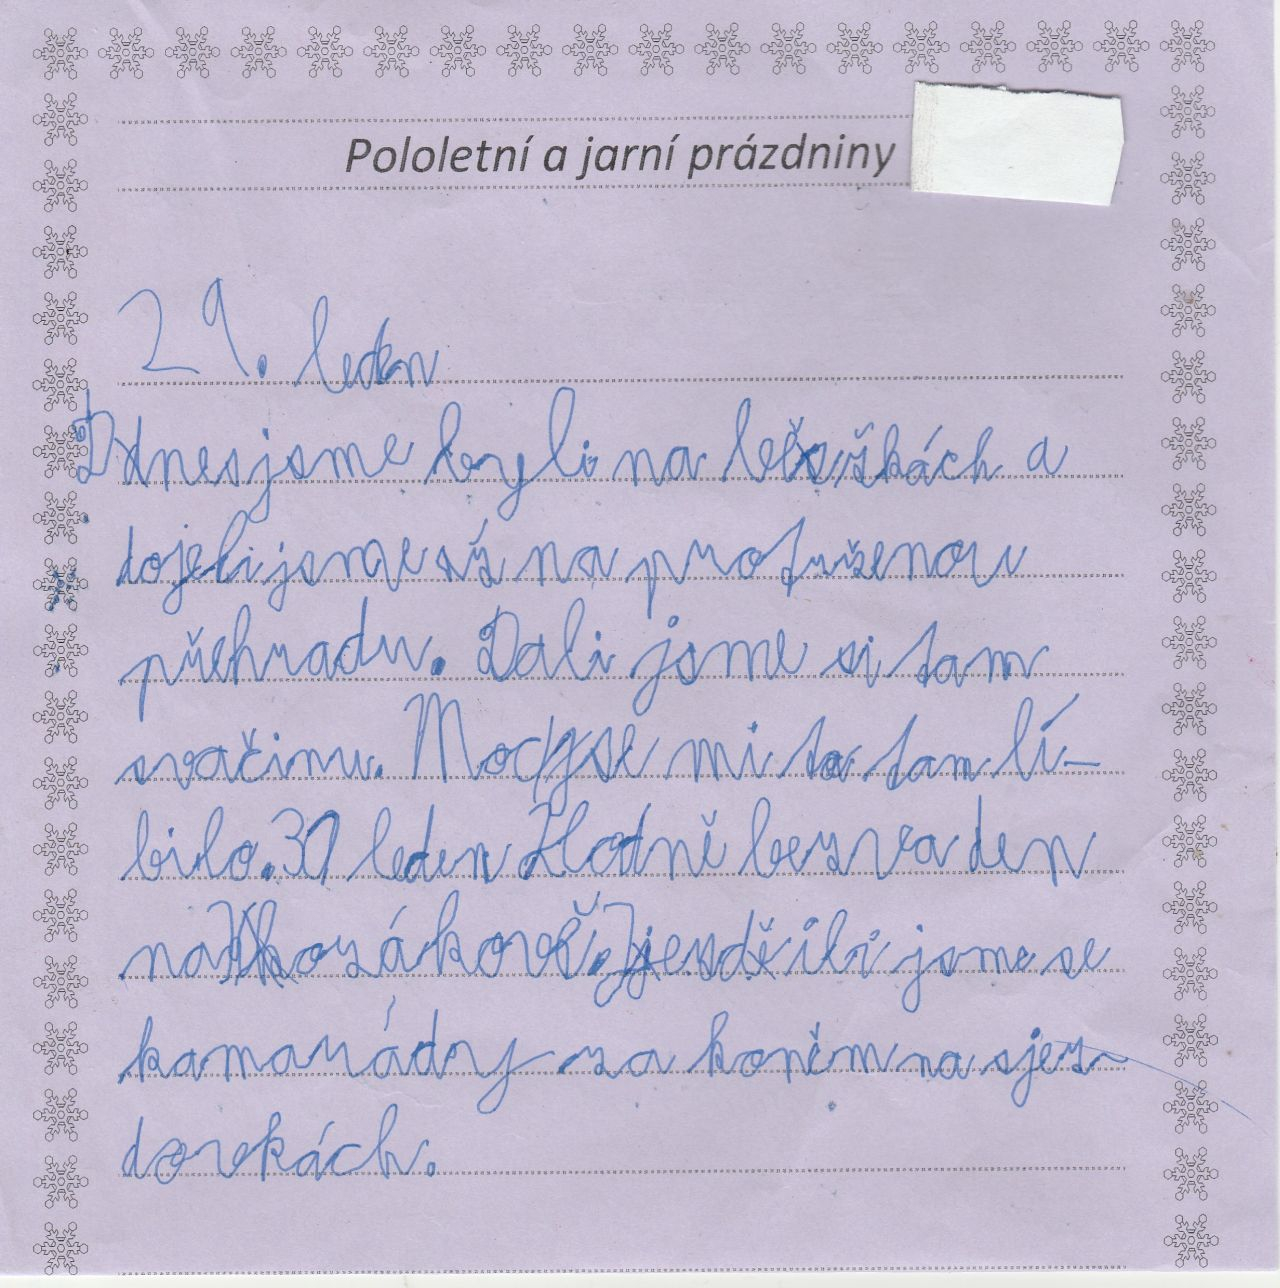 Pololetní a jarní prázdniny
29. leden
Dnes jsme byli na ležkách a
dojeli jsme až na protrženou
přehradu. Dali jsme si tam
svačinu. Moc se mi to tam lí-
bilo. 31 leden Hodně bezva den
na kozákově. jezdili jsme se
kamarády za koněm na sjez-
dovkách.